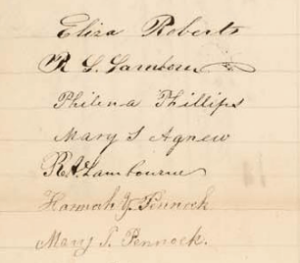 Eliza Roberts
R L Lamborn
Philena Phillips
Mary S Agnew
R. A. Lambourne
Hannah Y. Pennock
Mary S. Pennock.